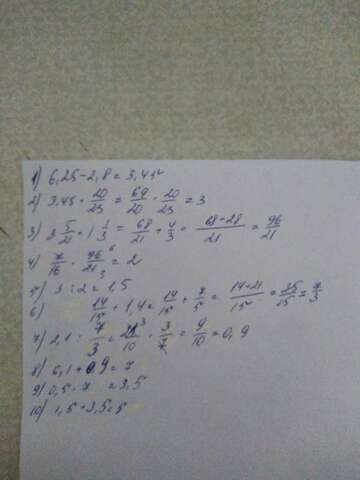 1) 6,25-2,8=3,45
2) 3,45 · 20/23 = 69/20 · 20/23 = 3
3) 3 5/21 + 1 1/3 = 68/21 + 4/3 = 68+28/21 = 96/21
4) 7/16 · 96 6/21 3 = 2
5) 3 : 2 = 1,5
6) 14/15 + 1,4 = 14/15 + 7/5 = 14+21/15 = 35/15 = 7/3
7) 2,1 : 7/3 = 21 3/10 · 3/7 = 9/10 = 0,9
8) 6,1 + 0,9 = 7
9) 0,5 · 7 = 3,5
10) 1,5+3,5=5